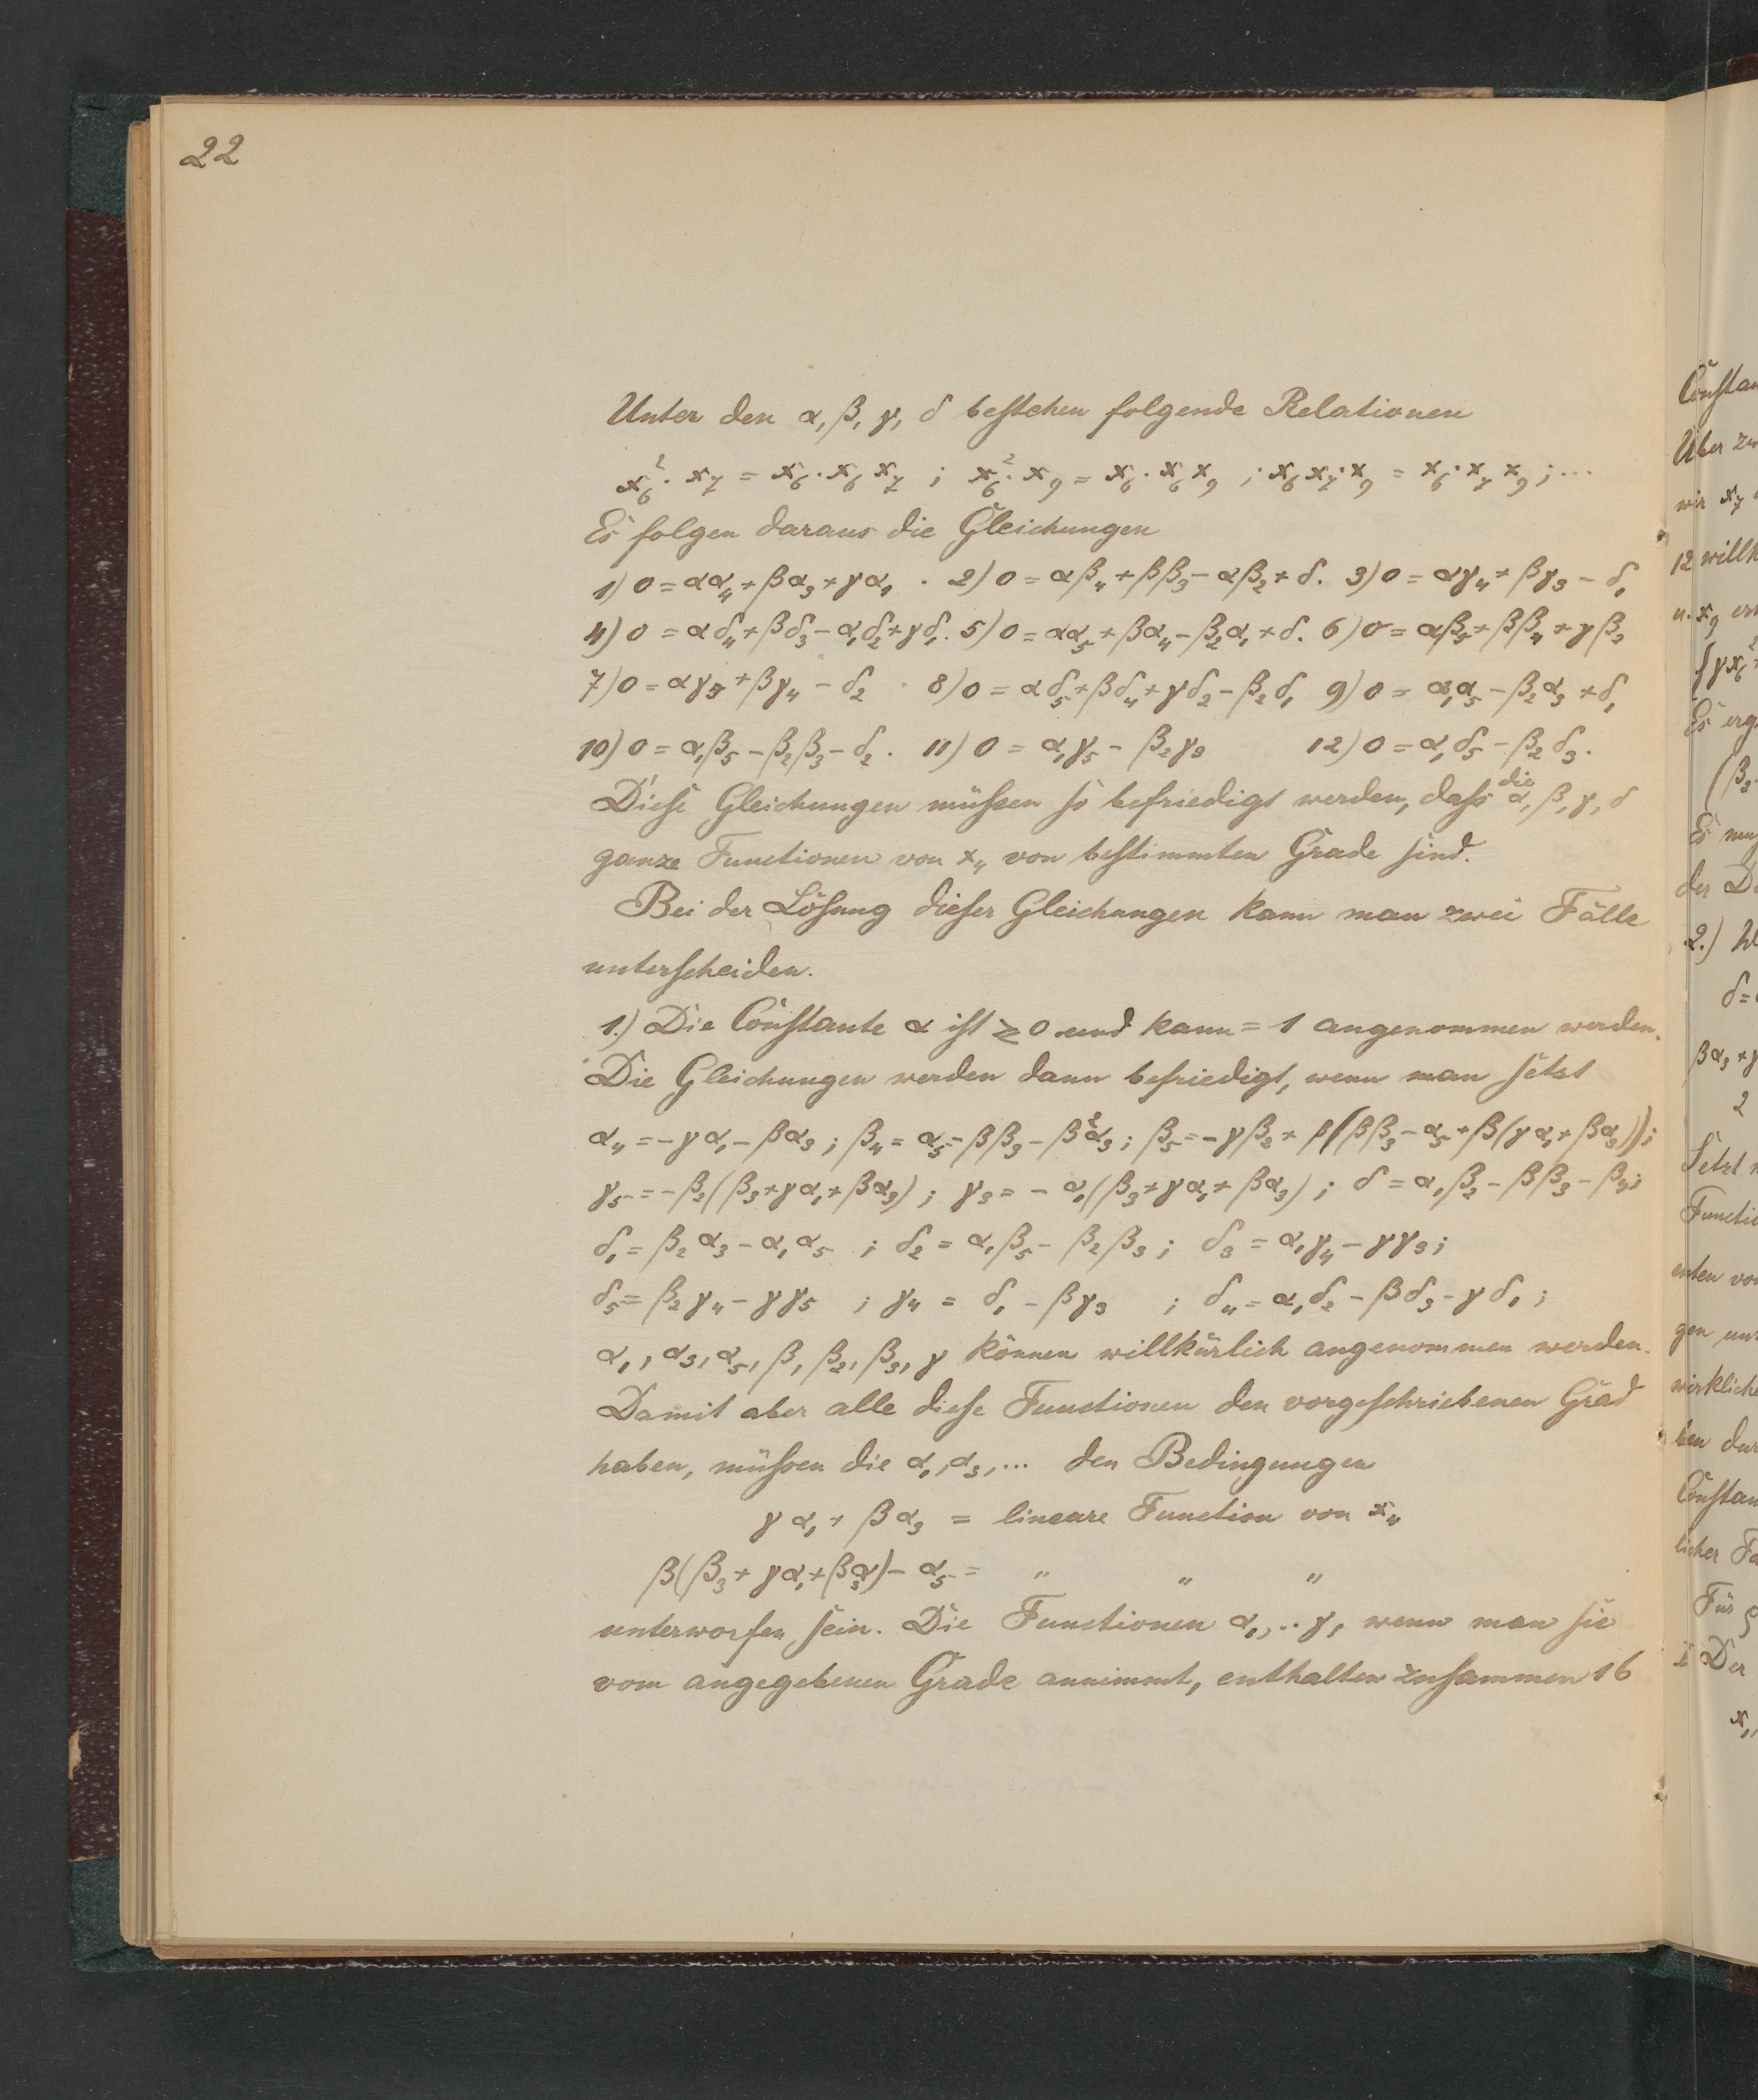 22
Unter den α, β, γ, δ bestehen folgende Relationen
x₆²·x₇ = x₆·x₆x₇ ; x₆²·x₉ = x₆·x₆x₉ ; x₆x₇·x₉ = x₆·x₇x₉ ; ...
Es folgen daraus die Gleichungen
1) 0 = αα₄+βα₃+γα₁ . 2) 0 = αβ₄+ββ₃-αβ₂+δ. 3) 0 = αγ₄+βγ₃-δ₁
4) 0 = αδ₄+βδ₃-α₁δ₂+γδ₁. 5) 0 = αα₅+βα₄-β₂α₁+δ. 6) 0 = αβ₅+ββ₄+γβ₂
7) 0 = αγ₅+βγ₄-δ₂ . 8) 0 = αδ₅+βδ₄+γδ₂-β₂δ₁ 9) 0 = α₁α₅-β₂α₃+δ₁
10) 0 = α₁β₅-β₂β₃-δ₂. 11) 0 = α₁γ₅-β₂γ₃ 12) 0 = α₁δ₅-β₂δ₃.
Diese Gleichungen müssen so befriedigt werden, dass die α, β, γ, δ
ganze Functionen von x₄ von bestimmten Grade sind.
Bei der Lösung dieser Gleichungen kann man zwei Fälle
unterscheiden.
1.) Die Constante α ist ≷ 0 und kann = 1 angenommen werden.
Die Gleichungen werden dann befriedigt, wenn man setzt
α₄ = -γα₁-βα₃ ; β₄ = α₅-ββ₃-β²α₃ ; β₅ = -γβ₂+β(ββ₃-α₅+β(γα₁+βα₃));
γ₅ = -β₂(β₃+γα₁+βα₃) ; γ₃ = -α₁(β₃+γα₁+βα₃) ; δ = α₁β₂-ββ₃-β₄;
δ₁ = β₂α₃-α₁α₅ ; δ₂ = α₁β₅-β₂β₃ ; δ₃ = α₁γ₄-γγ₃;
δ₅ = β₂γ₄-γγ₅ ; γ₄ = δ₁-βγ₃ ; δ₄ = α₁δ₂-βδ₃-γδ₁ ;
α₁, α₃, α₅, β, β₂, β₃, γ können willkürlich angenommen werden.
Damit aber alle diese Functionen den vorgeschriebenen Grad
haben, müssen die α₁, α₃, ... den Bedingungen
γα₁+βα₃ = lineare Function von x₄
β(β₃+γα₁+βα₃)-α₅ = " " "
unterworfen sein. Die Functionen α₁, .. γ, wenn man sie
vom angegebenen Grade annimmt, enthalten zusammen 16